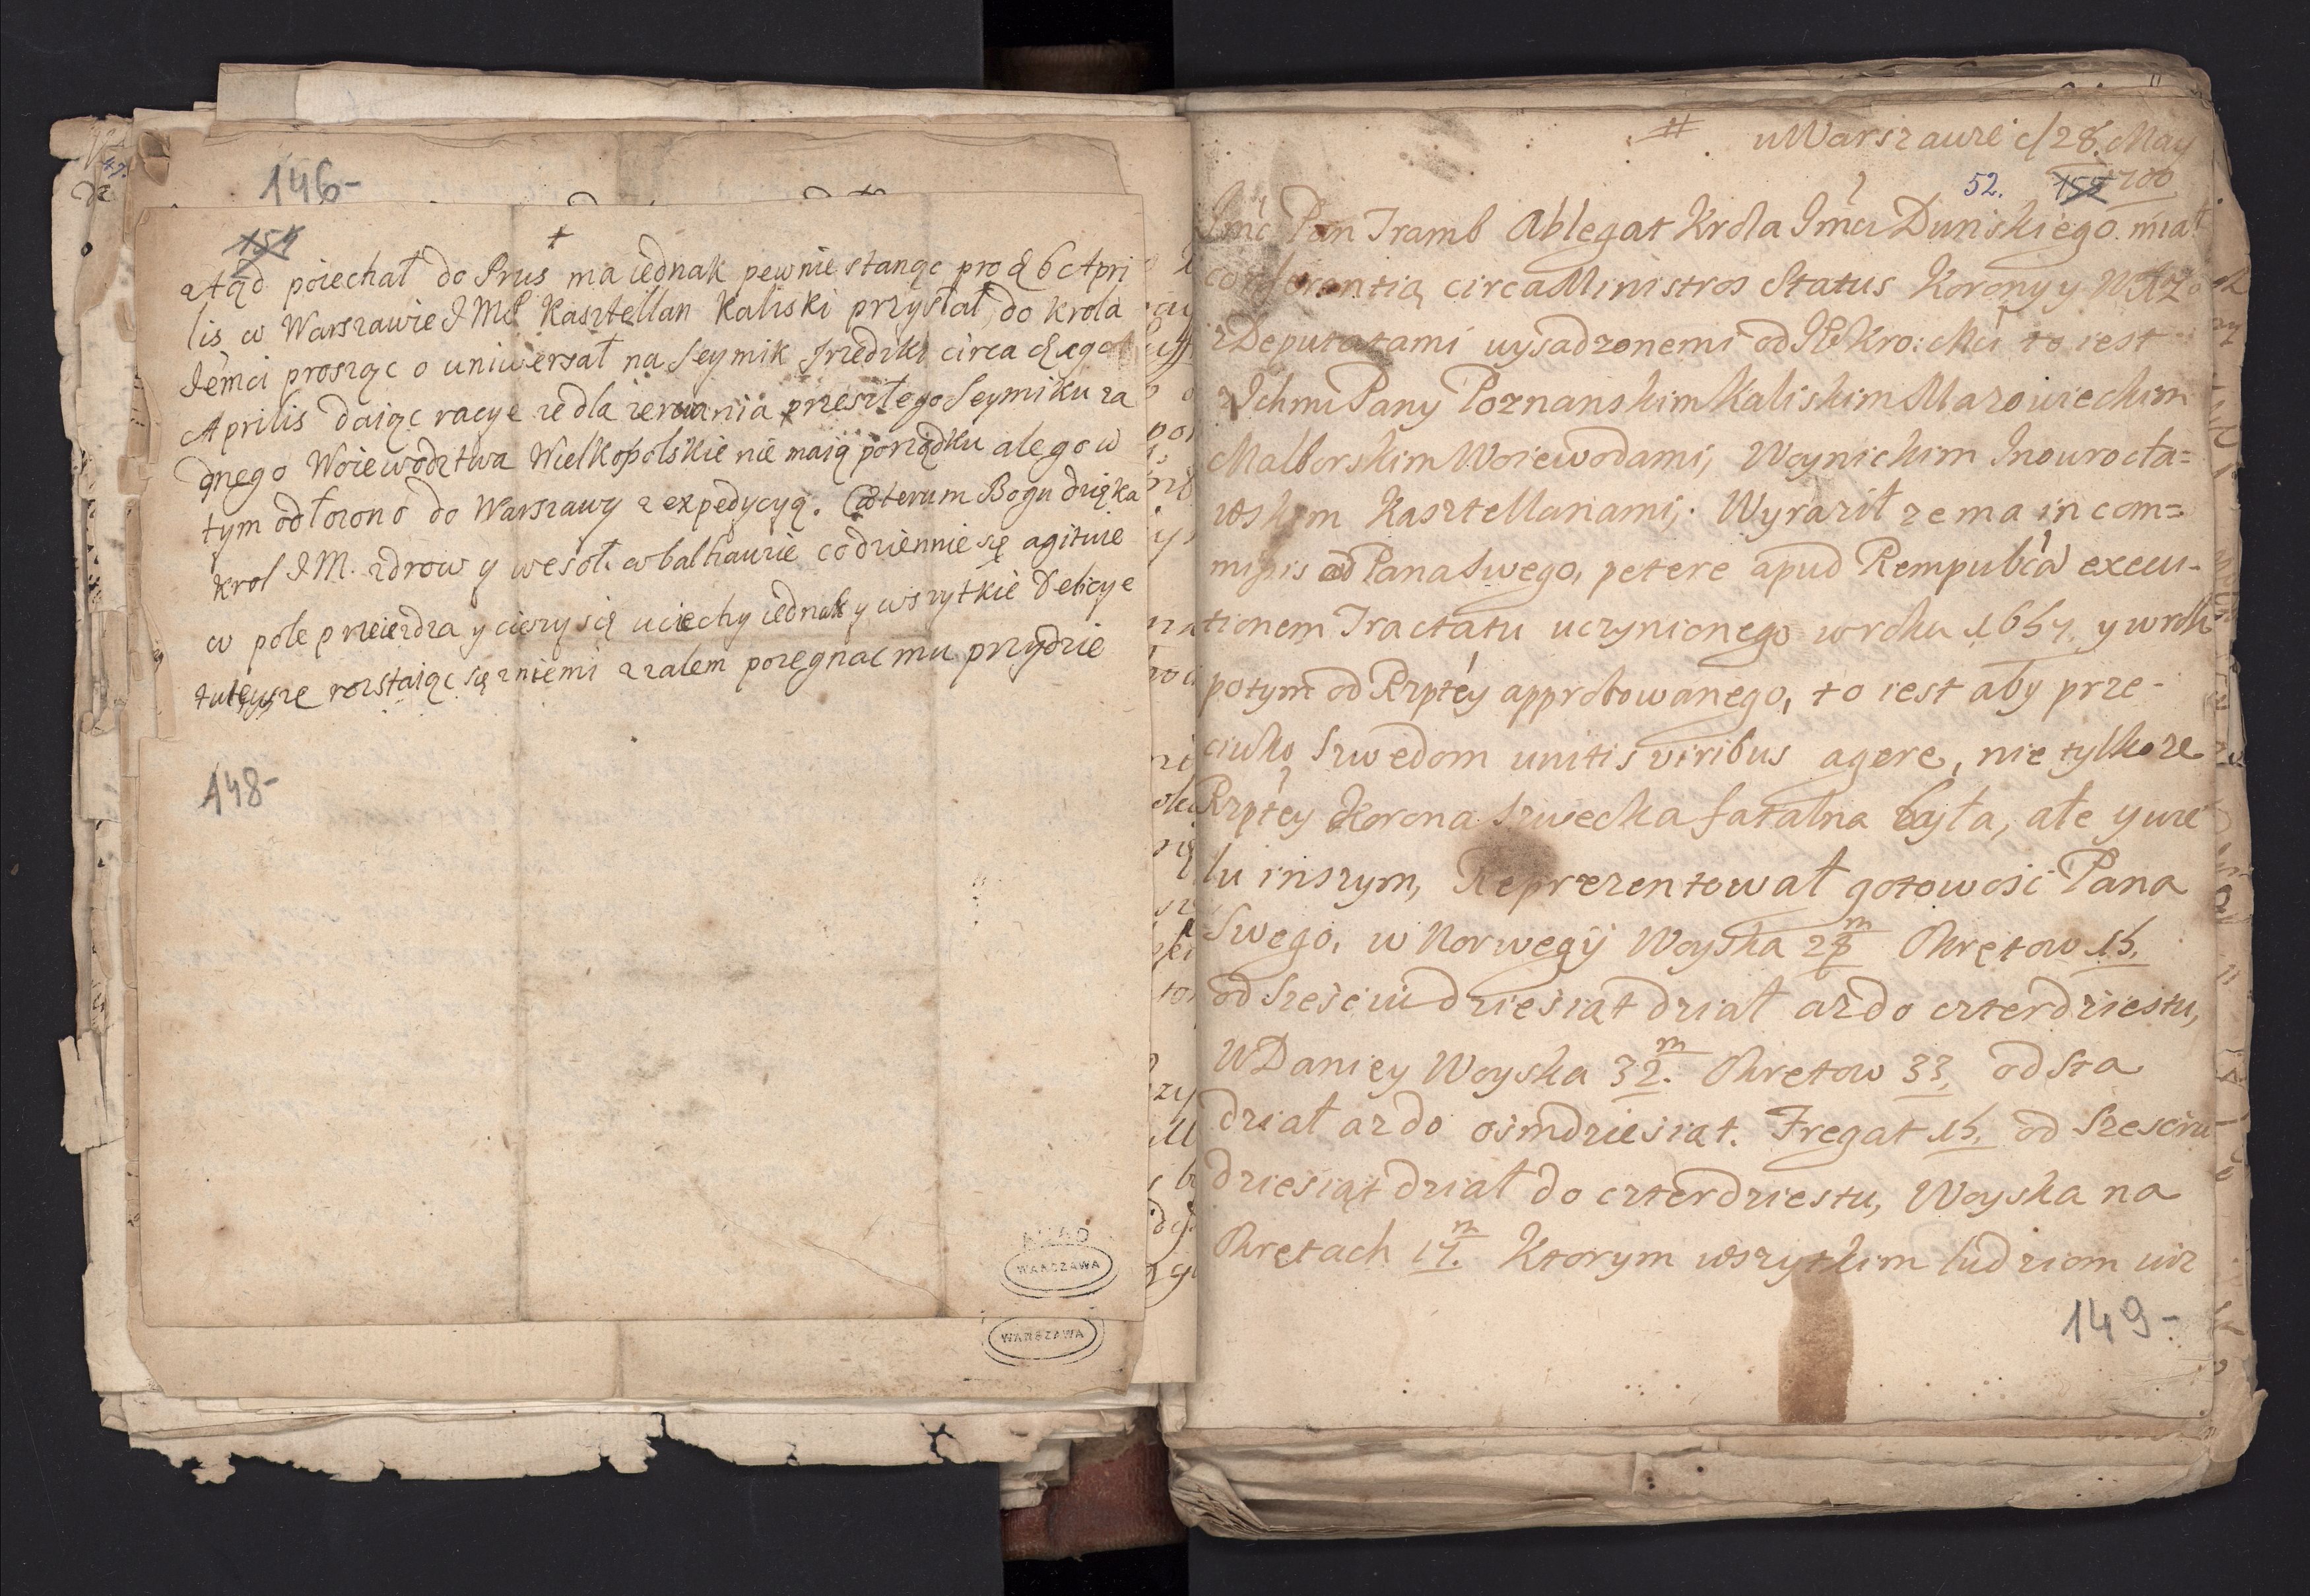 146-
154
+
ztąd poiechał do Prus ma iednak pewnie stanąc pro d 6 Apri
lis w Warszawie J M P Kasztellan Kaliski przysłał do krola
Jemci prosząc o uniwersał na Seymik Srzedzki circa
Aprilis daiąc racye ze dla zerwania przeszłego Seymiku za
dnego Woiewodztwa Wielkopolskie nie maią porządku ale go w
tym odłozono do Warszawy z expedycyą. Cæterum Bogu dzięka
krol J M. zdrow y wesoł. w balhauzie codziennie się agituie
w pole przeiezdza y cieszy się uciechy iednak y wszytkie Delicye
tuteysze rozstaiąc się z niemi z zalem pozegnac mu przydzie
148-
WARSZAWA
WARSZAWA
# w Warszawie d 28. May
52. 155 700
Jmć Pan Iramb Ablegat Krola Jmci Dunskiego miał
conferentią circa Ministros Status Korony y WXL
z Deputatami wysadzonemi od to iest
z Ichmi Pany Poznanskim Kaliskim Mazowieckim
Malborskim Woiewodami, Woynickim Inowrocła=
wskim Kasztellanami; Wyraził ze ma in com=
missis od Pana Swego, petere apud Rempublcã execu-
tionem Tractatu uczynionego w roku 1657 y w rok
potym od Rzptey approbowanego, to iest aby prze-
ciwko Szwedom unitis viribus agere, nie tylko ze
Rzptey Korona Szwecka fatalna była, ale y wie
lu inszym, Reprezentował gotowość Pana
Swego, w Norwegij Woyska 28 m Okrętow 15.
od Szesciudziesiąt dział az do czterdziestu,
W Daniey Woyska 32. m Okretow 33, od sta
dział az do osmdziesiąt. Fregat 15. od Szesciu
dziesiąt dział do czterdziestu, Woyska na
Okrętach 17. m Ktorym wszytkim ludziom iuz
149-